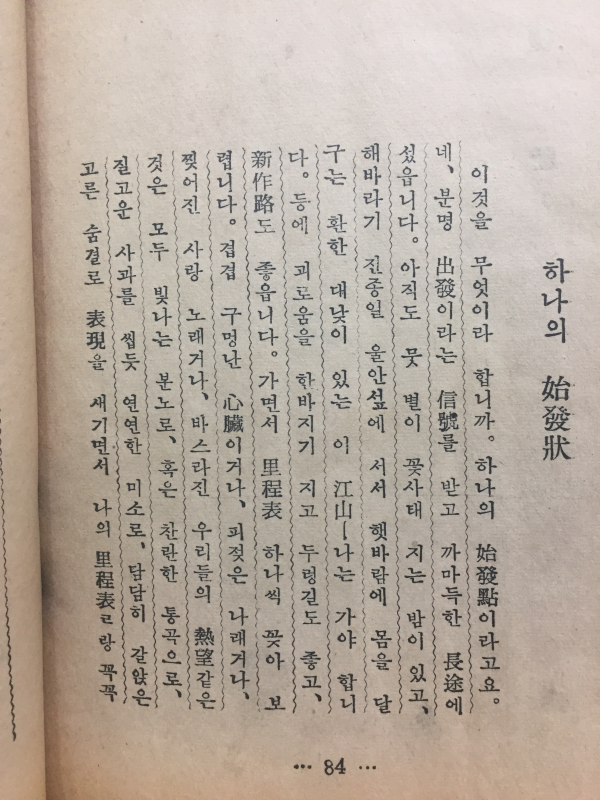 하나의 始發狀
이것을 무엇이라 합니까。하나의 始發點이라고요。
네、분명 出發이라는 信號를 받고 까마득한 長途에
섰읍니다。아직도 뭇 별이 꽃사태 지는 밤이 있고、
해바라기 진종일 울안섶에 서서 햇바람에 몸을 달
구는 환한 대낮이 있는 이 江山ㅡ나는 가야 합니
다。등에 괴로움을 한바지기 지고 두렁길도 좋고、
新作路도 좋읍니다。가면서 里程表 하나씩 꽂아 보
렵니다。겹겹 구멍난 心臟이거나、피젖은 나래거나、
찢어진 사랑 노래거나、바스라진 우리들의 熱望같은
것은 모두 빛나는 분노로、혹은 찬란한 통곡으로、
질고운 사과를 씹듯 연연한 미소로、담담히 갈앉은
고른 숨결로 表現을 새기면서 나의 里程表ㄹ랑 꼭꼭
… 84 …